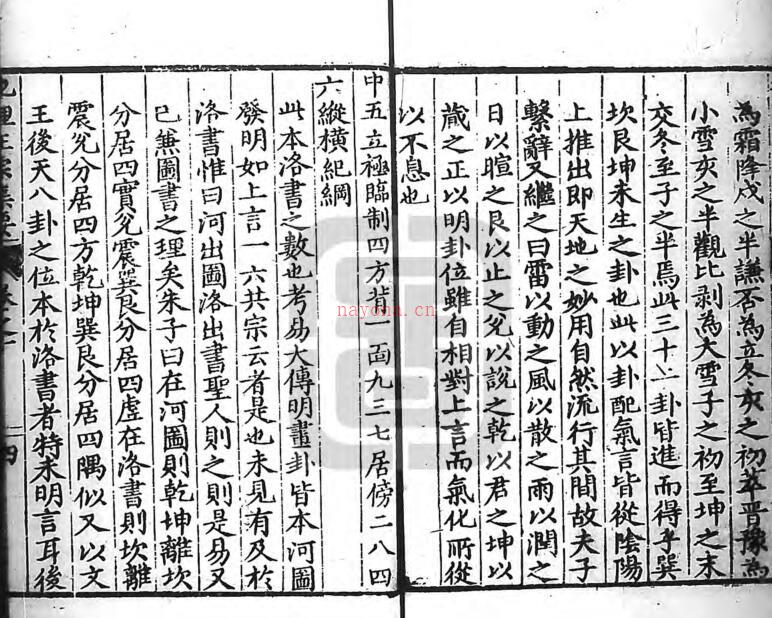 為霜降戌之半謙否為立冬亥之初萃晋豫為
小雪亥之半觀比剥為大雪子之初至坤之末
交冬至子之半焉此三十二卦皆進而得乎巽
坎艮坤未生之卦也此以卦配氣言皆從陰陽
上推出即天地之妙用自然流行其間故夫子
繫辭又繼之曰雷以動之風以散之雨以潤之
日以暄之艮以止之兌以說之乾以君之坤以
藏之正以明卦位雖自相對上言而氣化所從
以不息也
中五立極臨制四方背一面九三七居傍二八四
六縱横紀綱
此本洛書之數也考易大傳明畫卦皆本河圖
發明如上言一六共宗云者是也未見有及於
洛書惟曰河出圖洛出書聖人則之則是易又
已兼圖書之理矣朱子曰在河圖則乾坤離坎
分居四實兌震巽艮分居四虛在洛書則坎離
震兌分居四方乾坤巽艮分居四隅似又以文
王後天八卦之位本於洛書者特未明言耳後
四
nayona.cn